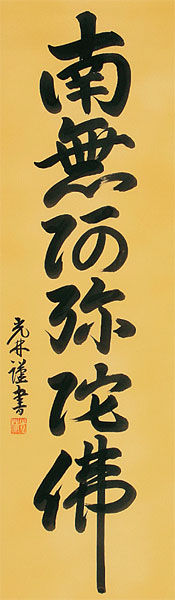 南無阿弥陀佛
光林謹書